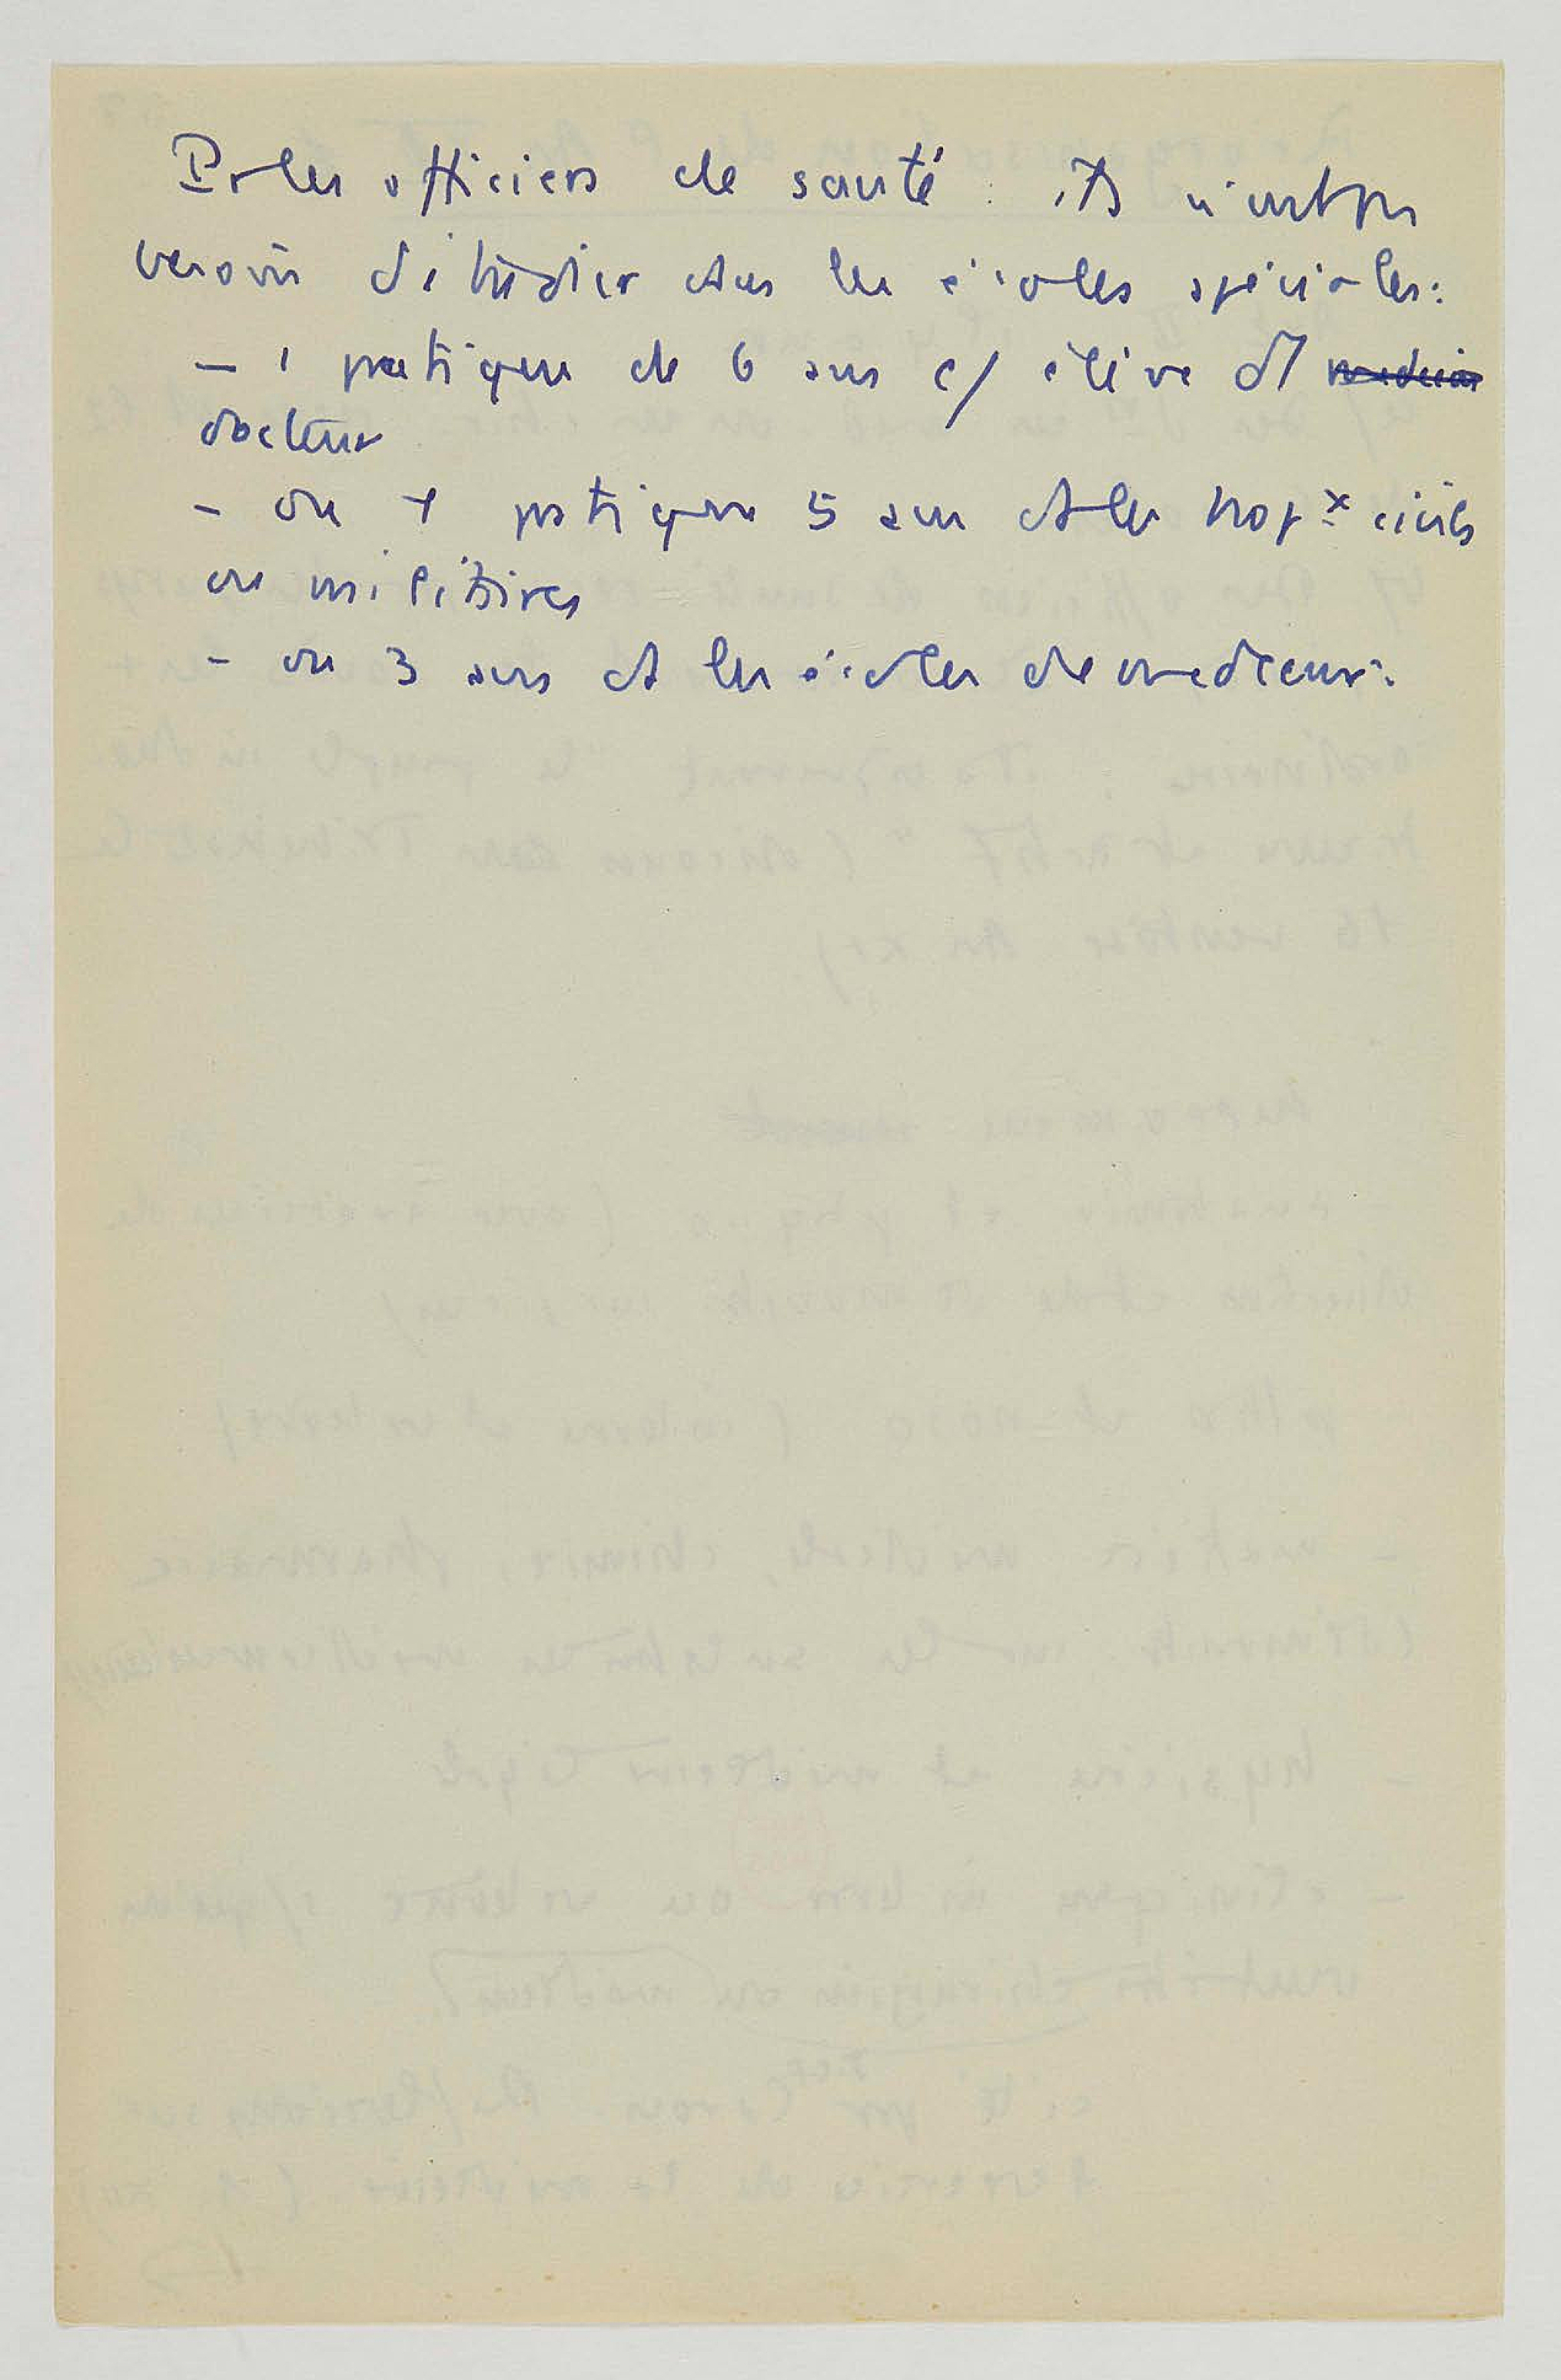 Pr les officiers de santé : ils n'ont pas
besoin d'étudier ds les écoles spéciales :
– 1 pratique de 6 ans c/ élève d'1 médecin
docteur
– ou 1 pratique 5 ans ds les hopx civils
ou militaires
– ou 3 ans ds les écoles de médecine.